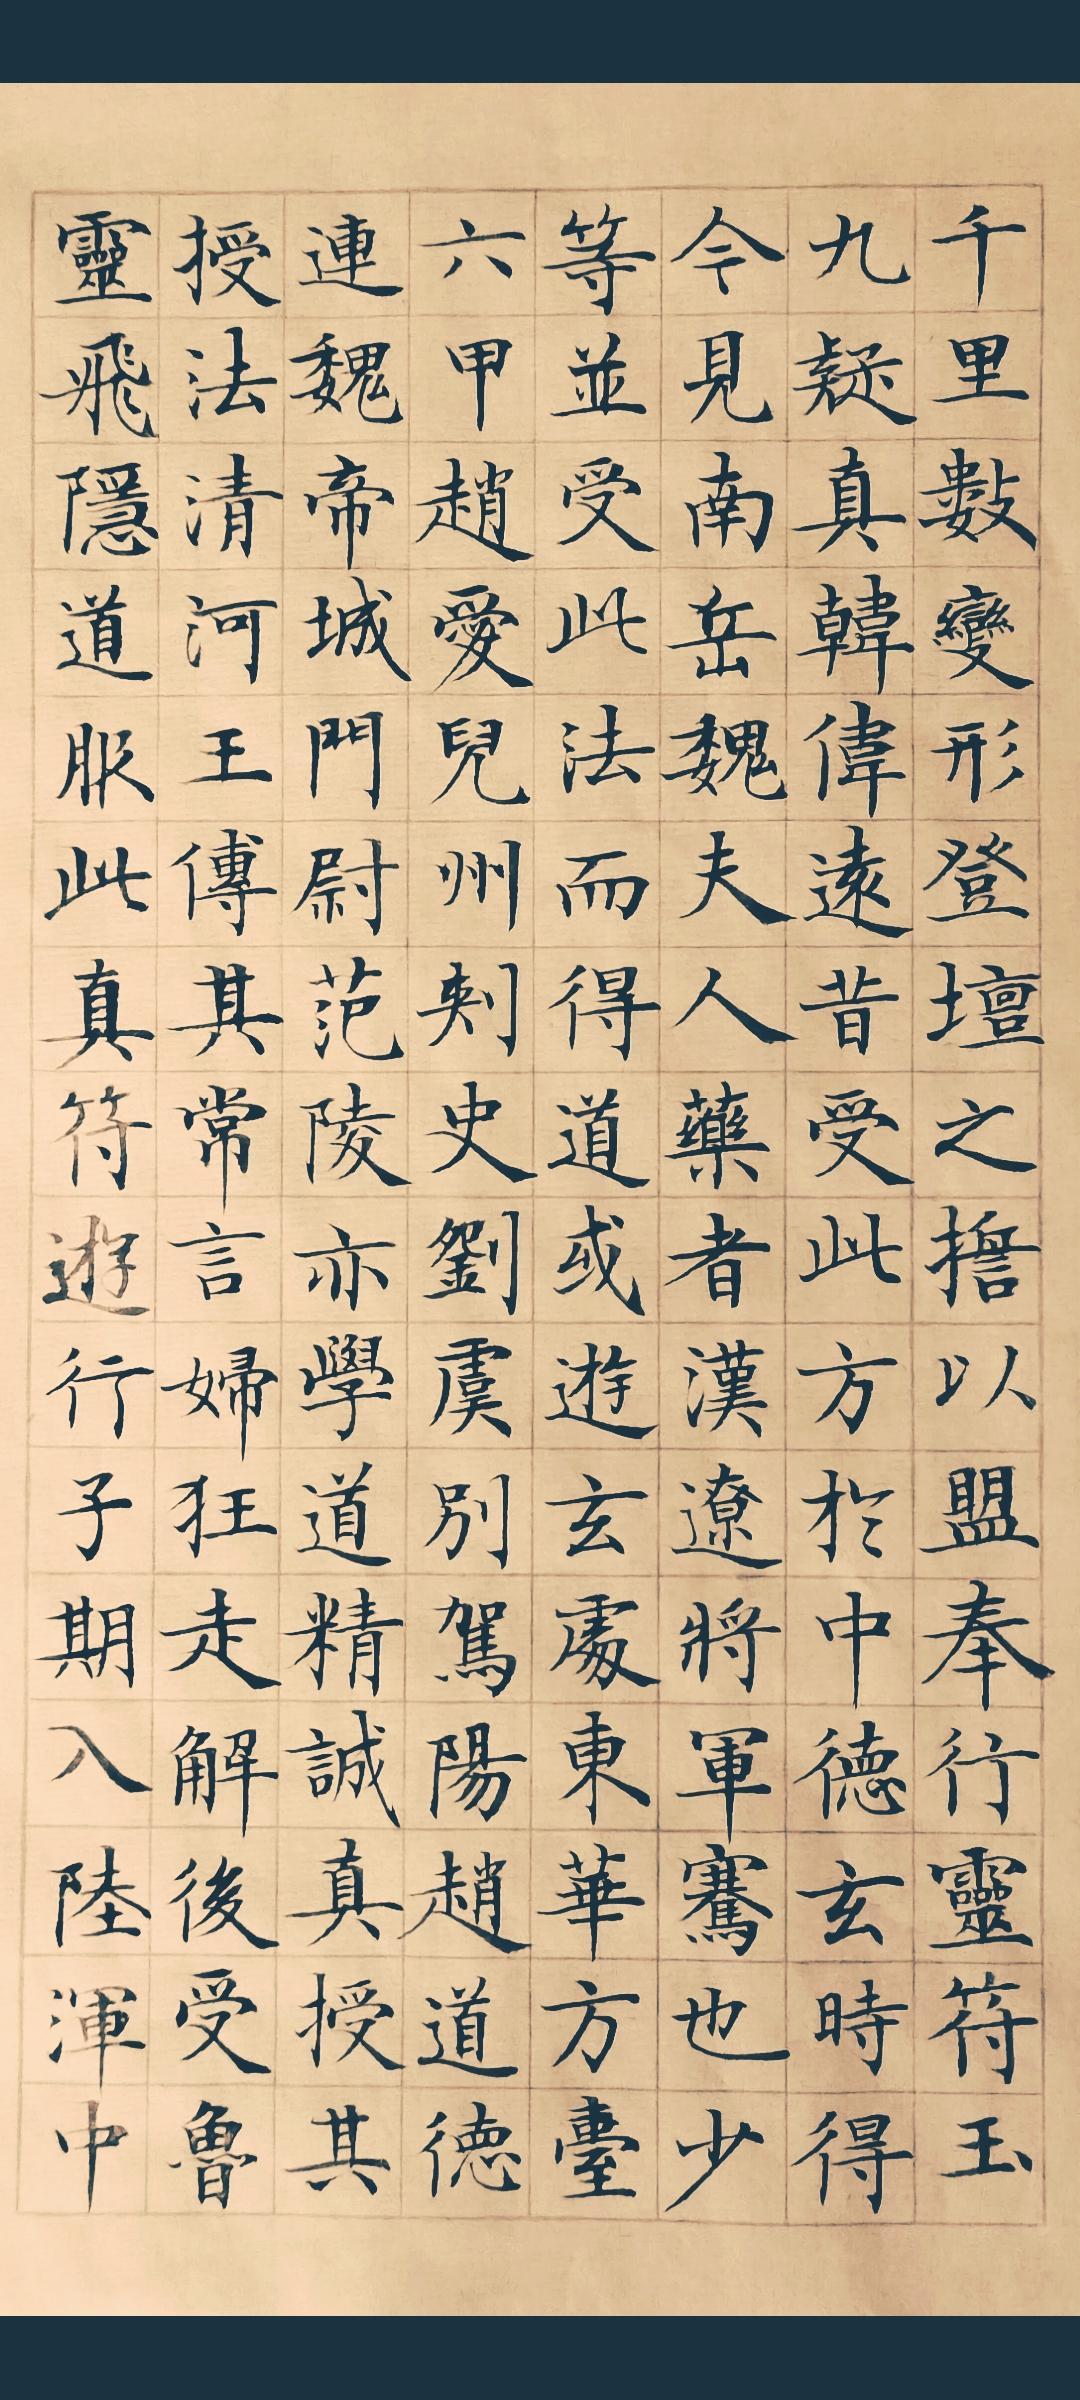 千里數變形登壇之擔以盟奉行靈符玉
九疑真韓偉遠昔受此方於中德玄時得
今見南岳魏夫人藥者漢遼將軍騫也少
等並受此法而得道或遊玄處東華方臺
六甲趙愛兒州刺史劉虞別駕陽趙道德
連魏帝城門尉范陵亦學道精誠真授其
授法清河王傳其常言婦狂走解後受魯
靈飛隱道服此真符遊行子期入陸渾中